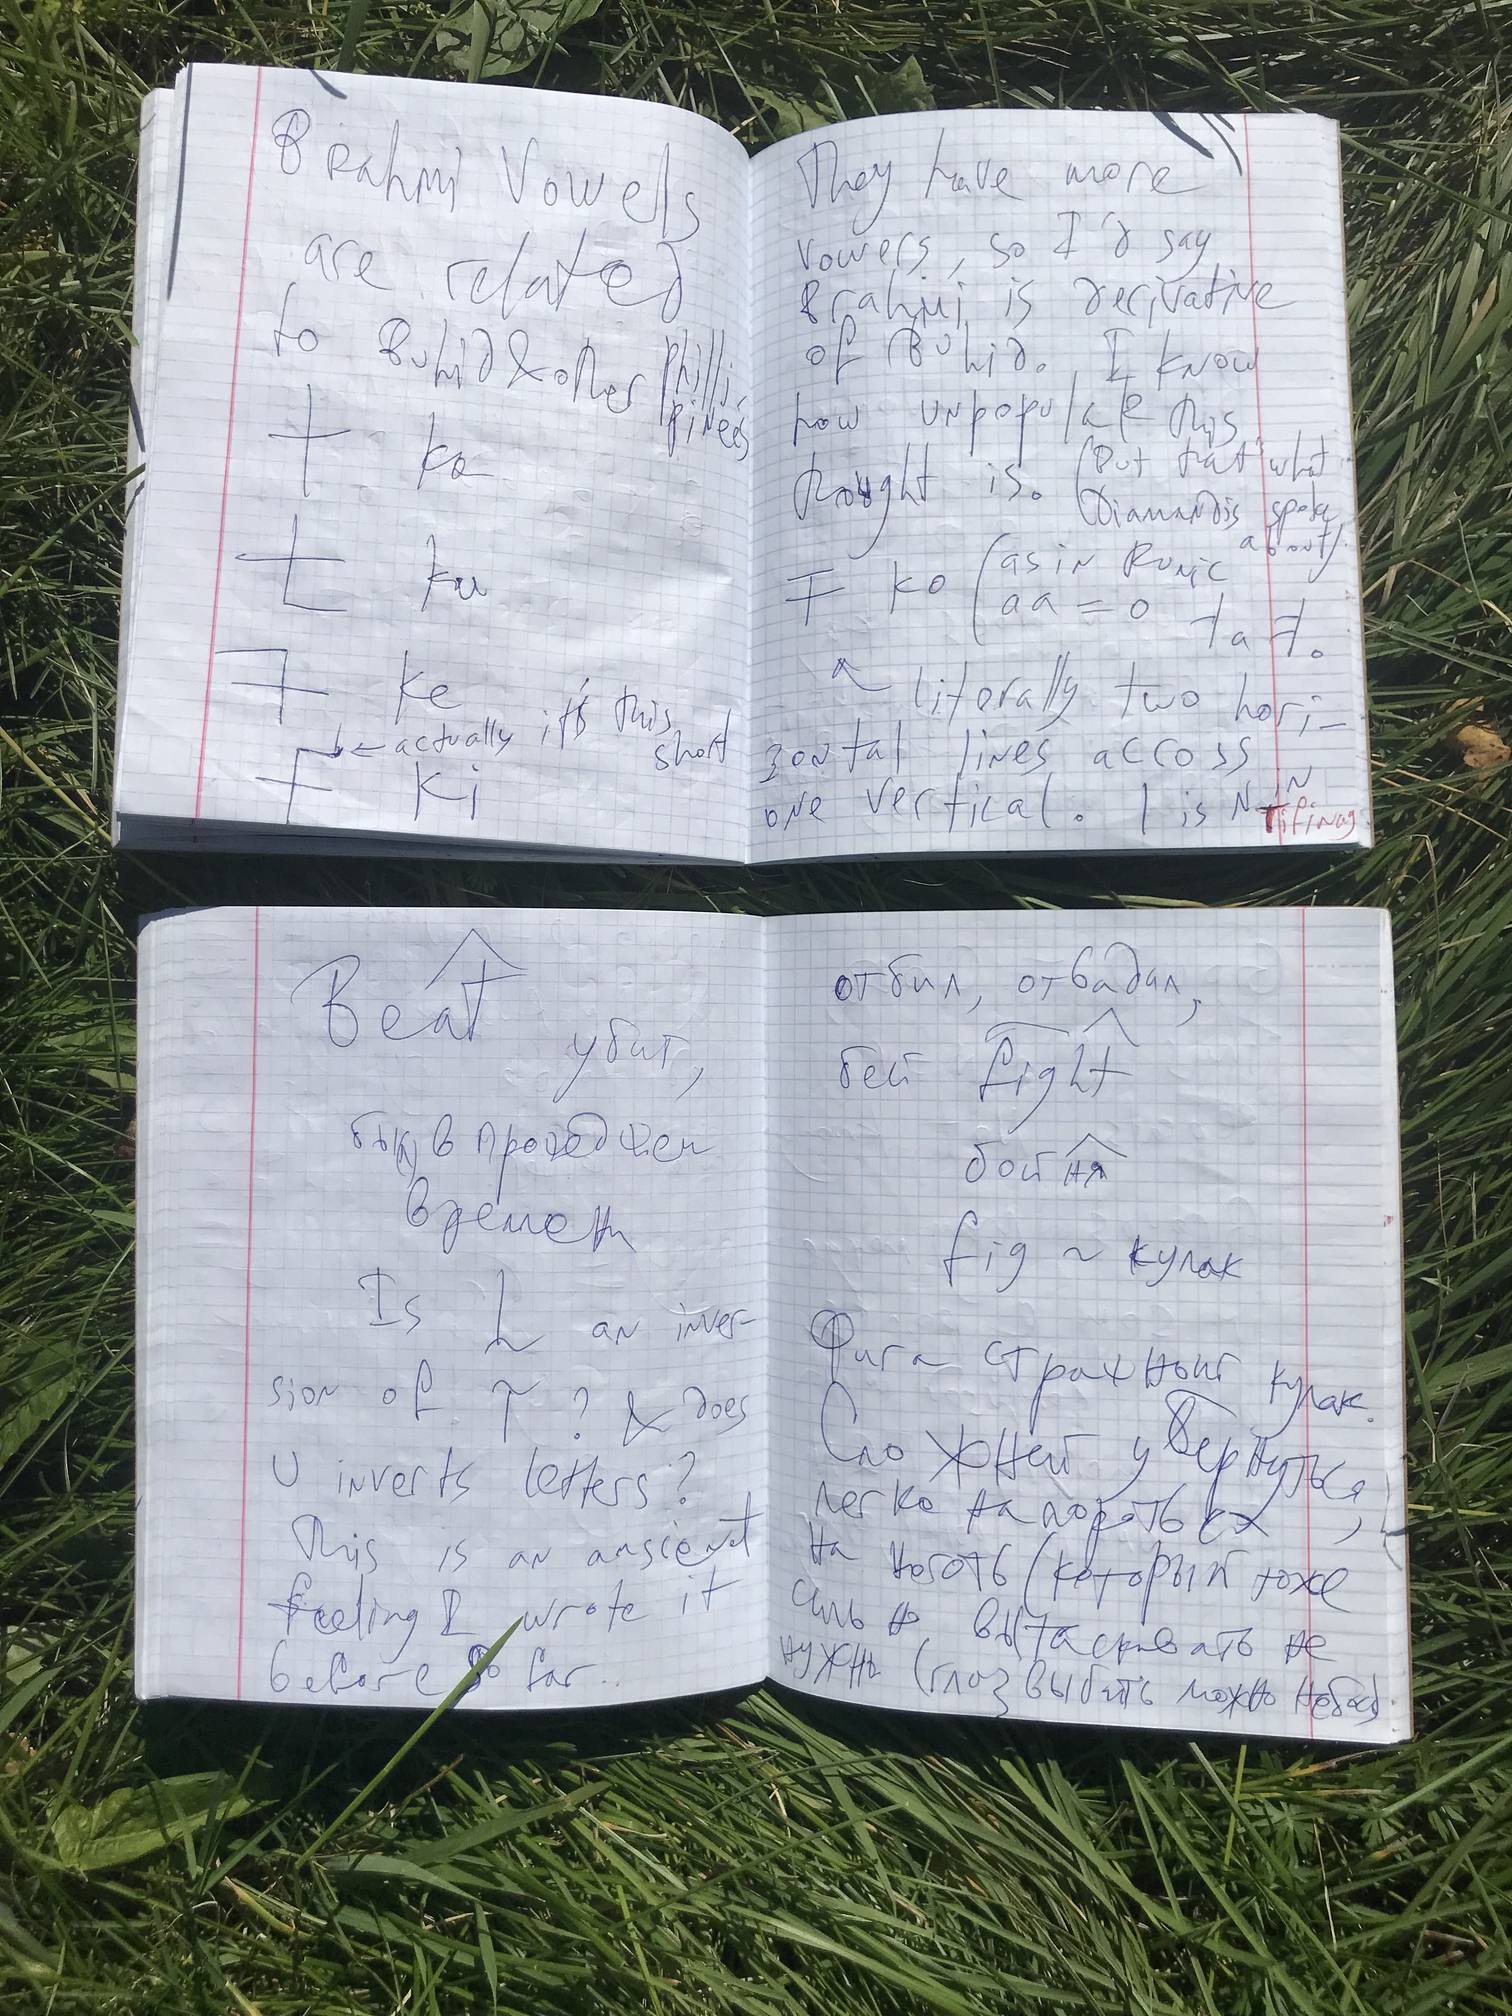 Brahmi Vowels
are related
to Buhid & other Philli
pinees
ka
ku
ke
← actually it's this
short
ki
They have more
vowels, so I'd say
Brahmi is derivative
of Buhid. I know
how unpopular this
thought is. (But that what
Diamandis spoke
about)
ko (as in Runic
aa = o
literally two hori-
zontal lines accross
one vertical. | is N in
Tifinag
Beat
убит,
был, в
времени
Is h an inver-
sion of ? & does
U inverts letters?
This is an anscient
feeling I wrote it
before so far..
отбил, отвадил,
бей fight
бойня
fig ~ кулак
Фига страхный кулак.
Сложней увернуться,
легко напороться
на ноготь (который тоже
сильно вытаскивать не
нужны (глаз выбить можно небось